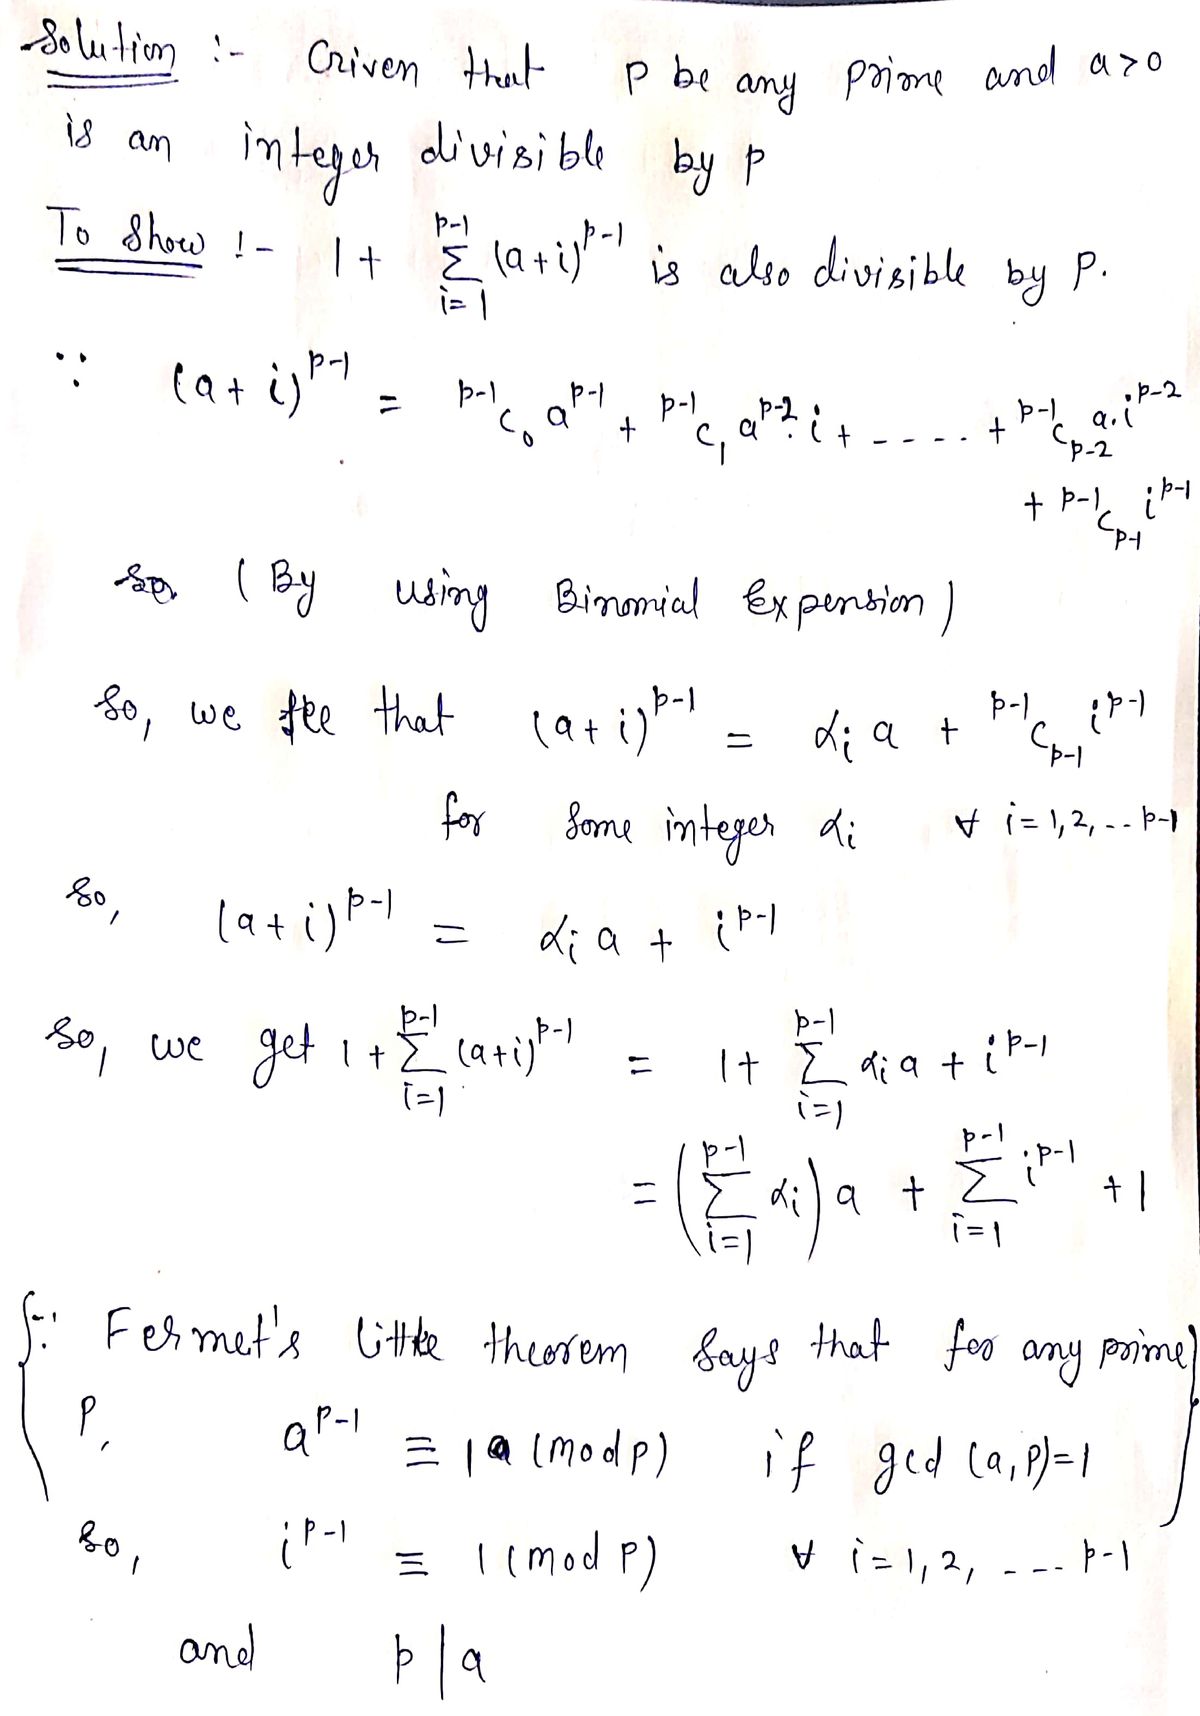 Solution :- Given that p be any prime and a>0
is an integer divisible by p
To Show :- 1 + \sum_{i=1}^{p-1} (a+i)^{p-1} is also divisible by p.
∵ (a+i)^{p-1} = ^{p-1}C_0 a^{p-1} + ^{p-1}C_1 a^{p-2}. i + ----. + ^{p-1}C_{p-2} a.i^{p-2}
+ ^{p-1}C_{p-1} i^{p-1}
(By using Binomial Expension)
So, we see that (a+i)^{p-1} = α_i a + ^{p-1}C_{p-1} i^{p-1}
for some integer α_i ∀ i=1,2,-- p-1
So, (a+i)^{p-1} = α_i a + i^{p-1}
So, we get 1 + \sum_{i=1}^{p-1} (a+i)^{p-1} = 1 + \sum_{i=1}^{p-1} α_i a + i^{p-1}
= (\sum_{i=1}^{p-1} α_i) a + \sum_{i=1}^{p-1} i^{p-1} + 1
{∵ Fermet's little theorem says that for any prime
p, a^{p-1} ≡ 1 (mod p) if gcd (a,p)=1}
So, i^{p-1} ≡ 1 (mod p) ∀ i=1,2, ---- p-1
and p | a